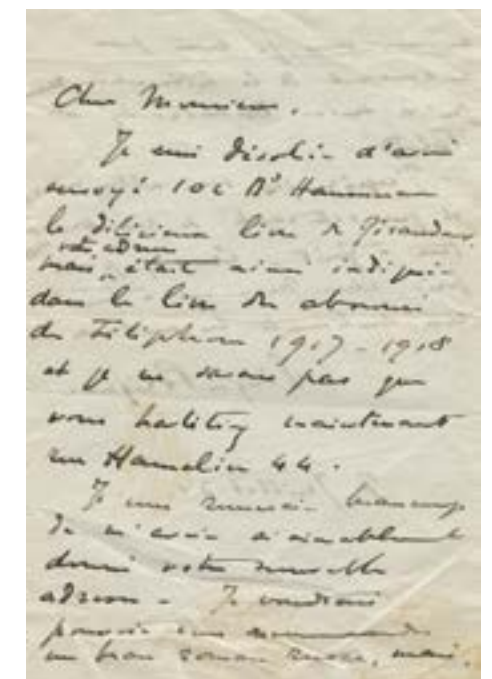 Cher Monsieur,
Je suis désolée d'avoir
envoyé 102 Bd Haussmann
le délicieux livre de Giraudoux
votre adresse
mais était ainsi indiquée
dans le livre des abonnés
du Téléphone 1917-1918
et je ne savais pas que
vous habitiez maintenant
rue Hamelin 44.
Je vous remercie beaucoup
de m'avoir si aimablement
donné votre nouvelle
adresse - Je voudrais
pouvoir vous recommander
un beau roman russe, mais,